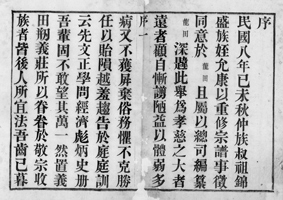 序
民國八年己未秋仲族叔祖錦
盛族姪允康以重修宗譜事徵
同意於龍田且屬以總司編纂
龍田深韙此舉爲孝慈之大者
遠者顧自慚譾陋益以體弱多
序一
病又不獲屏棄俗務懼不克勝
任以貽隕越羞趨告於庭庭訓
云先文正學問經濟彪炳史册
吾輩固不敢望其萬一然置義
田剏義莊所以眷眷於敬宗收
族者皆後人所宜法吾齒已暮